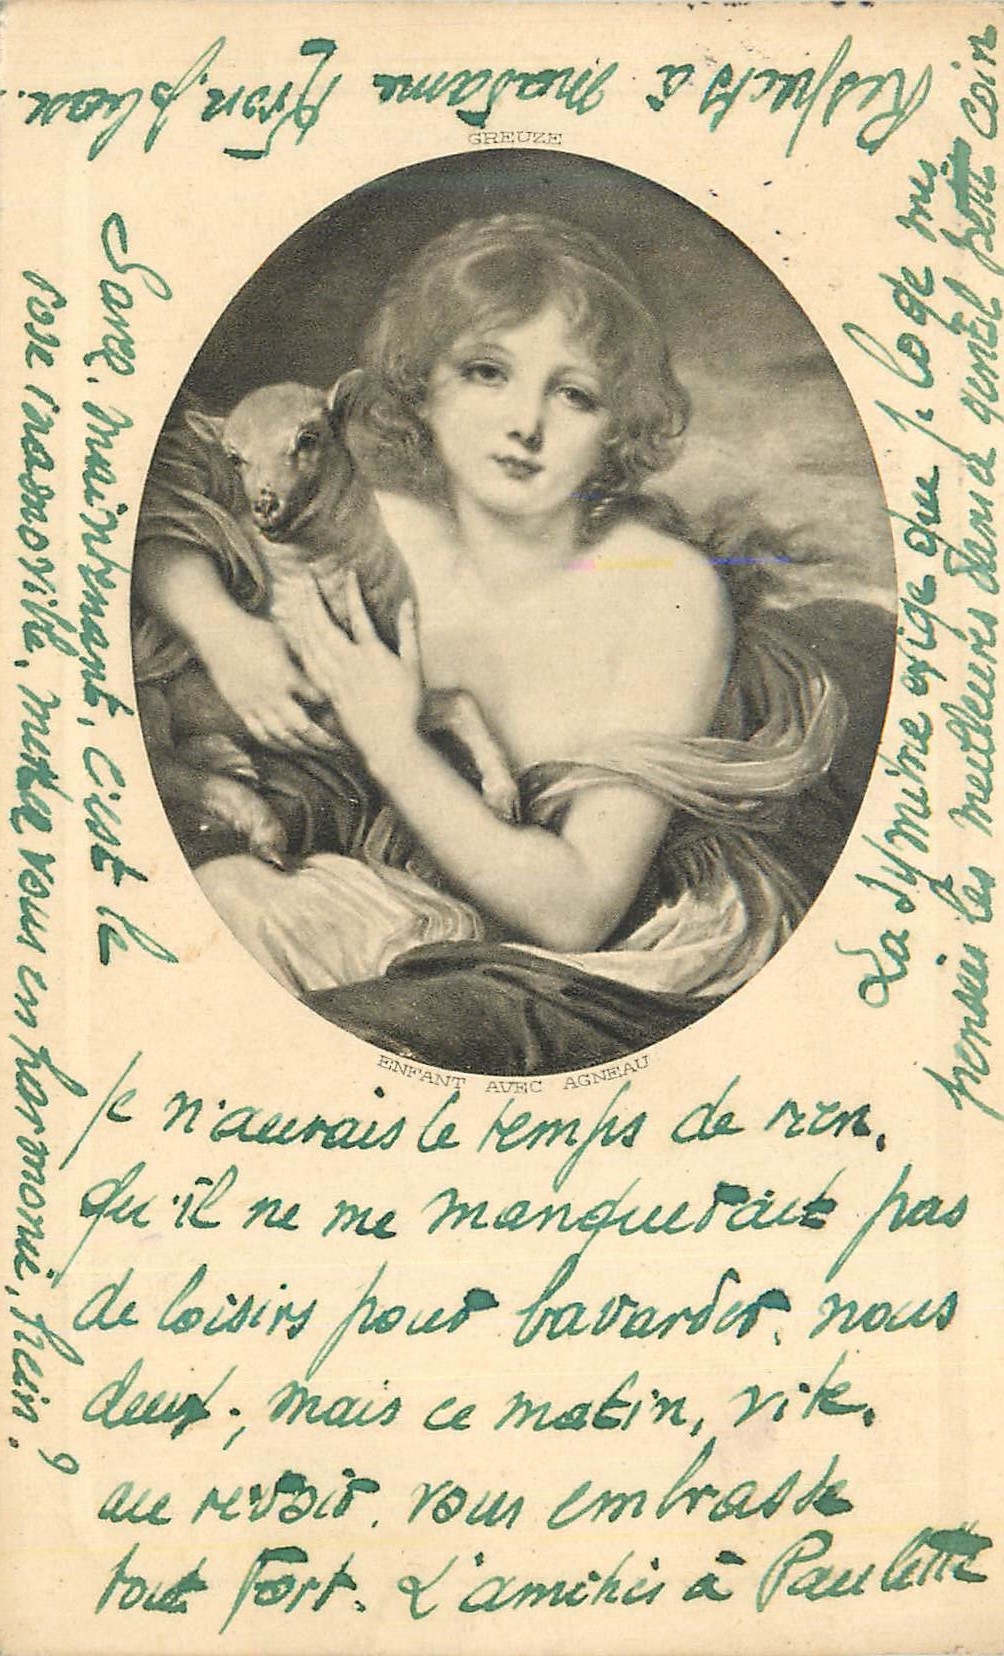 GREUZE
ENFANT AVEC AGNEAU
je n'aurais le temps de rien.
qu'il ne me manquerait pas
de loisirs pour bavarder, nous
deux; mais ce matin, vite,
au revoir, vous embrasse
tout fort. L'amitiés à Paulette
La symétrie exige que je loge mes
pensées les meilleures dans a gentil petit coin
Respects à madame
maintenant, c'est le
rose inamovible, mitte vous en harmonie, hein?